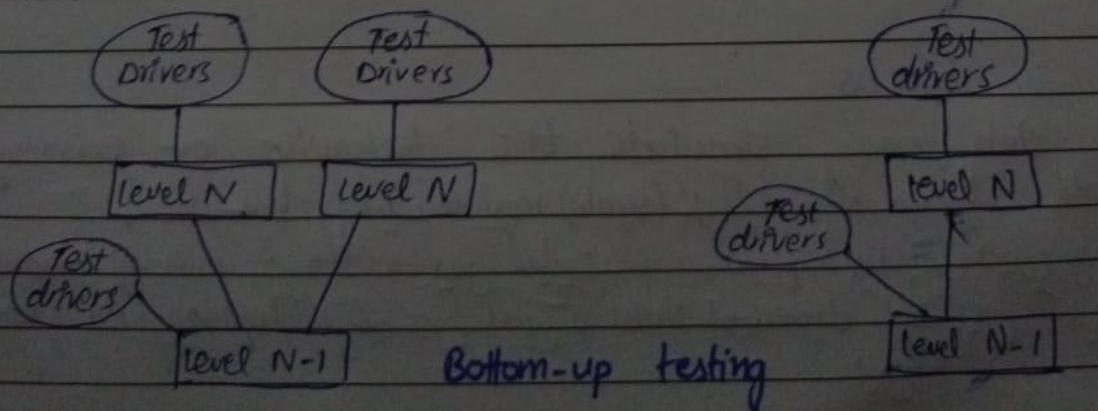 Test
Drivers
Test
Drivers
Test
drivers
Level N
Level N
Level N
Test
drivers
Test
drivers
Level N-1
Bottom-up testing
Level N-1